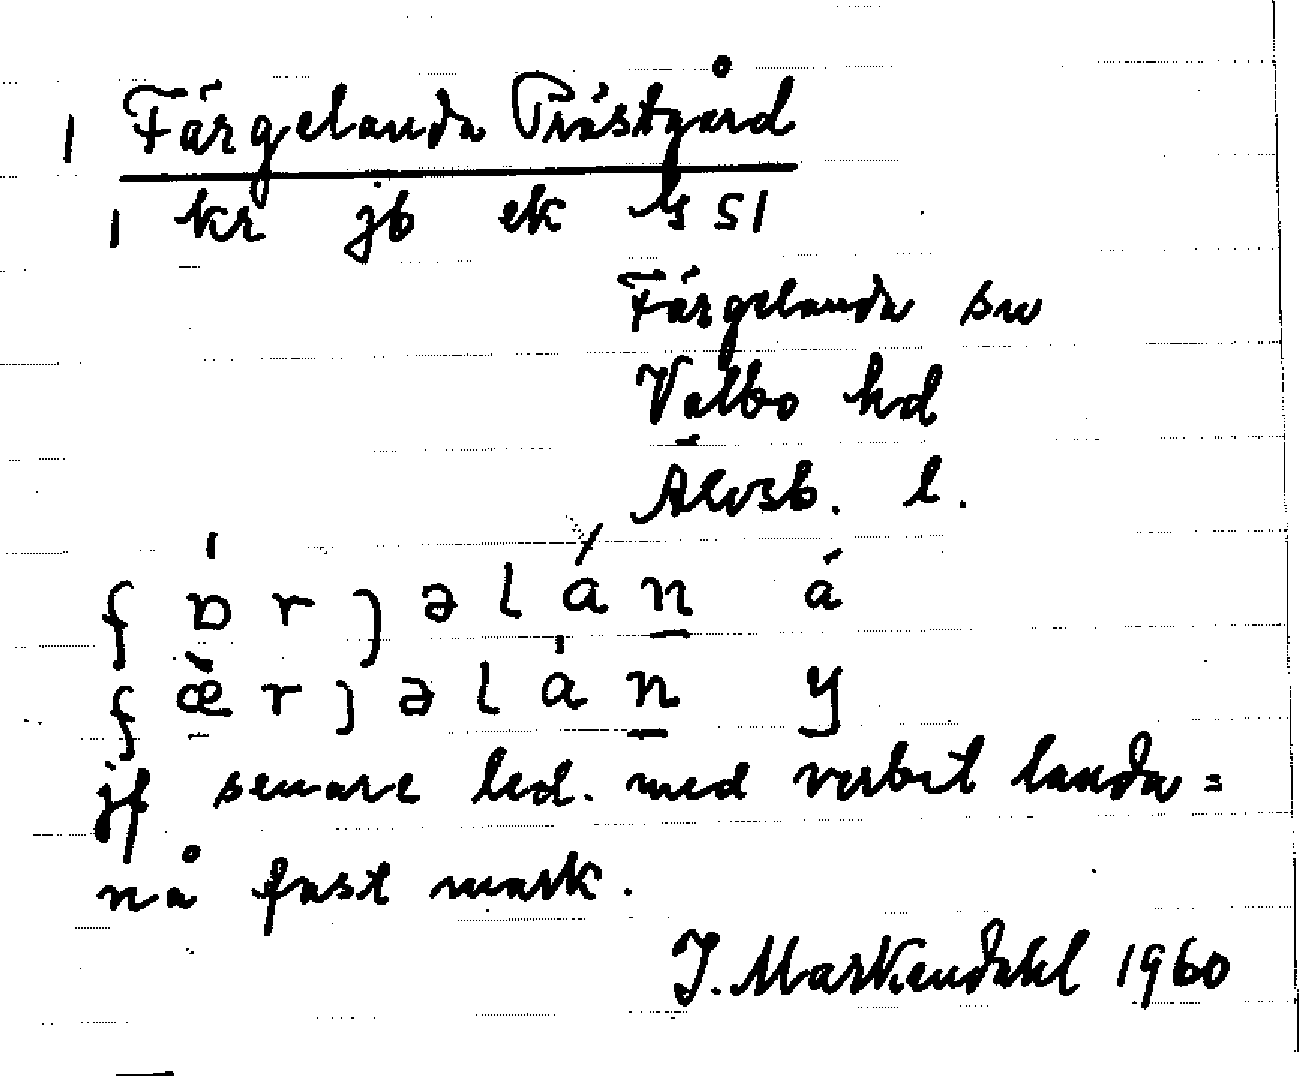 1 Färgelanda Prästgård
1 kr jb ek G 51
Färgelanda sn
Valbo hd
Älvsb. l.
fɒ́rȷəlán á
fæ̀rȷəlán y
jf senare led. med verbet landa =
nå fast mark.
J. Markendahl 1960